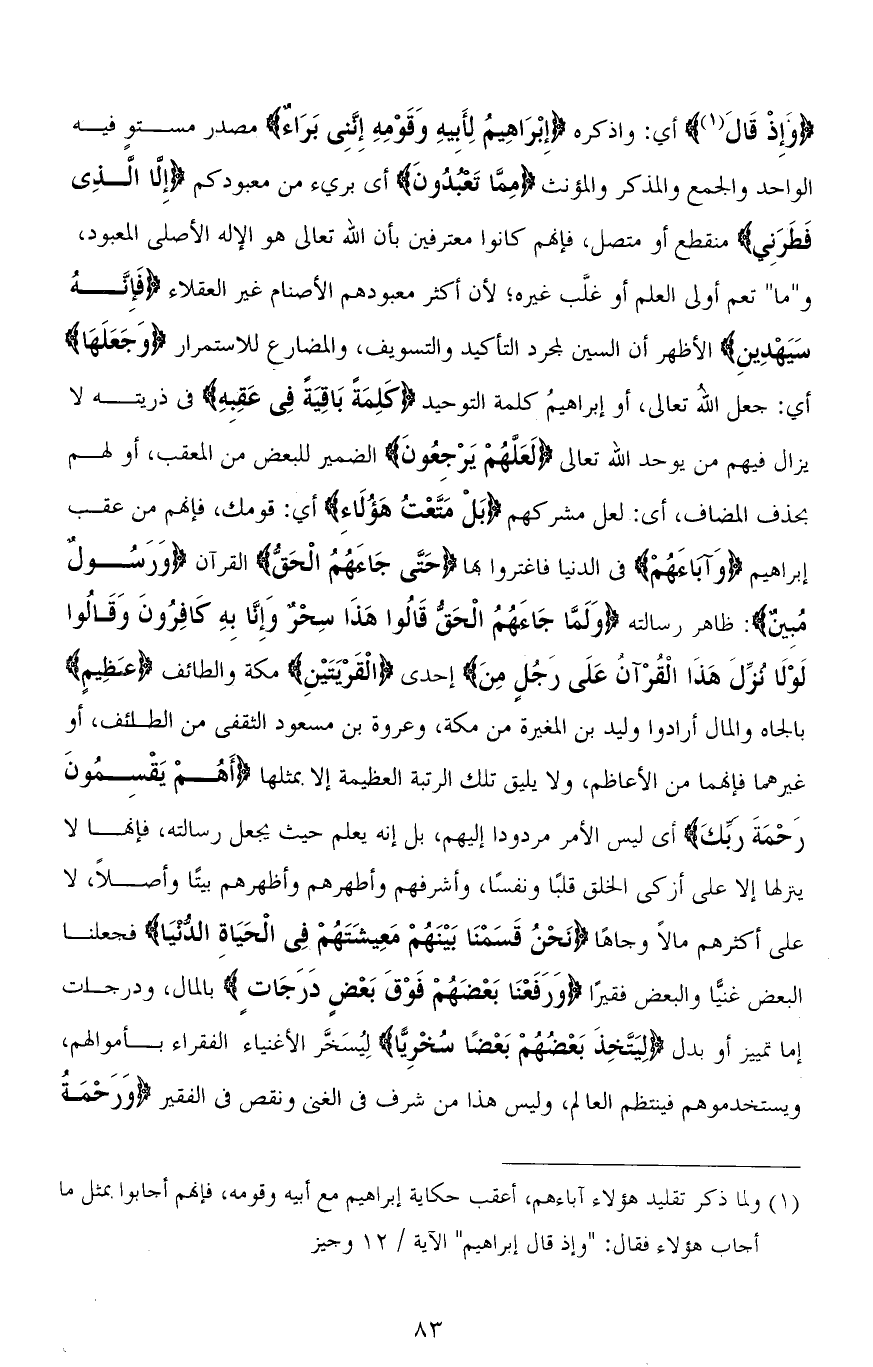 ﴿وَإِذْ قَالَ(١)﴾ أي: واذكره ﴿إِبْرَاهِيمُ لِأَبِيهِ وَقَوْمِهِ إِنَّنِى بَرَاءٌ﴾ مصدر مستوٍ فيه
الواحد والجمع والمذكر والمؤنث ﴿مِمَّا تَعْبُدُونَ﴾ أى بريء من معبودكم ﴿إِلَّا الَّذِى
فَطَرَنِي﴾ منقطع أو متصل، فإنهم كانوا معترفين بأن الله تعالى هو الإله الأصلى المعبود،
و"ما" تعم أولى العلم أو غلَّب غيره؛ لأن أكثر معبودهم الأصنام غير العقلاء ﴿فَإِنَّهُ
سَيَهْدِينِ﴾ الأظهر أن السين لمجرد التأكيد والتسويف، والمضارع للاستمرار ﴿وَجَعَلَهَا﴾
أي: جعل اللهُ تعالى، أو إبراهيمُ كلمة التوحيد ﴿كَلِمَةً بَاقِيَةً فِى عَقِبِهِ﴾ فى ذريته لا
يزال فيهم من يوحد الله تعالى ﴿لَعَلَّهُمْ يَرْجِعُونَ﴾ الضمير للبعض من المعقب، أو لهم
بحذف المضاف، أى: لعل مشركهم ﴿بَلْ مَتَّعْتُ هَؤُلَاءِ﴾ أي: قومك، فإنهم من عقب
إبراهيم ﴿وَآبَاءَهُمْ﴾ فى الدنيا فاغتروا بها ﴿حَتَّى جَاءَهُمُ الْحَقُّ﴾ القرآن ﴿وَرَسُولٌ
مُبِينٌ﴾: ظاهر رسالته ﴿وَلَمَّا جَاءَهُمُ الْحَقُّ قَالُوا هَذَا سِحْرٌ وَإِنَّا بِهِ كَافِرُونَ وَقَالُوا
لَوْلَا نُزِّلَ هَذَا الْقُرْآنُ عَلَى رَجُلٍ مِنَ﴾ إحدى ﴿الْقَرْيَتَيْنِ﴾ مكة والطائف ﴿عَظِيمٍ﴾
بالجاه والمال أرادوا وليد بن المغيرة من مكة، وعروة بن مسعود الثقفى من الطائف، أو
غيرهما فإنهما من الأعاظم، ولا يليق تلك الرتبة العظيمة إلا بمثلها ﴿أَهُمْ يَقْسِمُونَ
رَحْمَةَ رَبِّكَ﴾ أى ليس الأمر مردودا إليهم، بل إنه يعلم حيث يجعل رسالته، فإنها لا
ينزلها إلا على أزكى الخلق قلبًا ونفسًا، وأشرفهم وأطهرهم وأظهرهم بيتًا وأصلاً، لا
على أكثرهم مالاً وجاهًا ﴿نَحْنُ قَسَمْنَا بَيْنَهُمْ مَعِيشَتَهُمْ فِى الْحَيَاةِ الدُّنْيَا﴾ فجعلنا
البعض غنيًّا والبعض فقيرًا ﴿وَرَفَعْنَا بَعْضَهُمْ فَوْقَ بَعْضٍ دَرَجَاتٍ﴾ بالمال، ودرجات
إما تمييز أو بدل ﴿لِيَتَّخِذَ بَعْضُهُمْ بَعْضًا سُخْرِيًّا﴾ لِيُسَخَّر الأغنياء الفقراء بأموالهم،
ويستخدموهم فينتظم العالم، وليس هذا من شرف فى الغنى ونقص فى الفقير ﴿وَرَحْمَةُ
(١) ولما ذكر تقليد هؤلاء آباءهم، أعقب حكاية إبراهيم مع أبيه وقومه، فإنهم أجابوا بمثل ما
أجاب هؤلاء فقال: "وإذ قال إبراهيم" الآية / ١٢ وجيز
٨٣